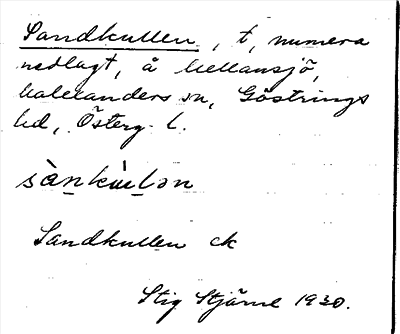 Sandkullen, t, numera
nedlagt, å Mellansjö,
Malexanders sn, Göstrings
hd, Österg. l.
sànkúlən
Sandkullen ck
Stig Stjärne 1930.